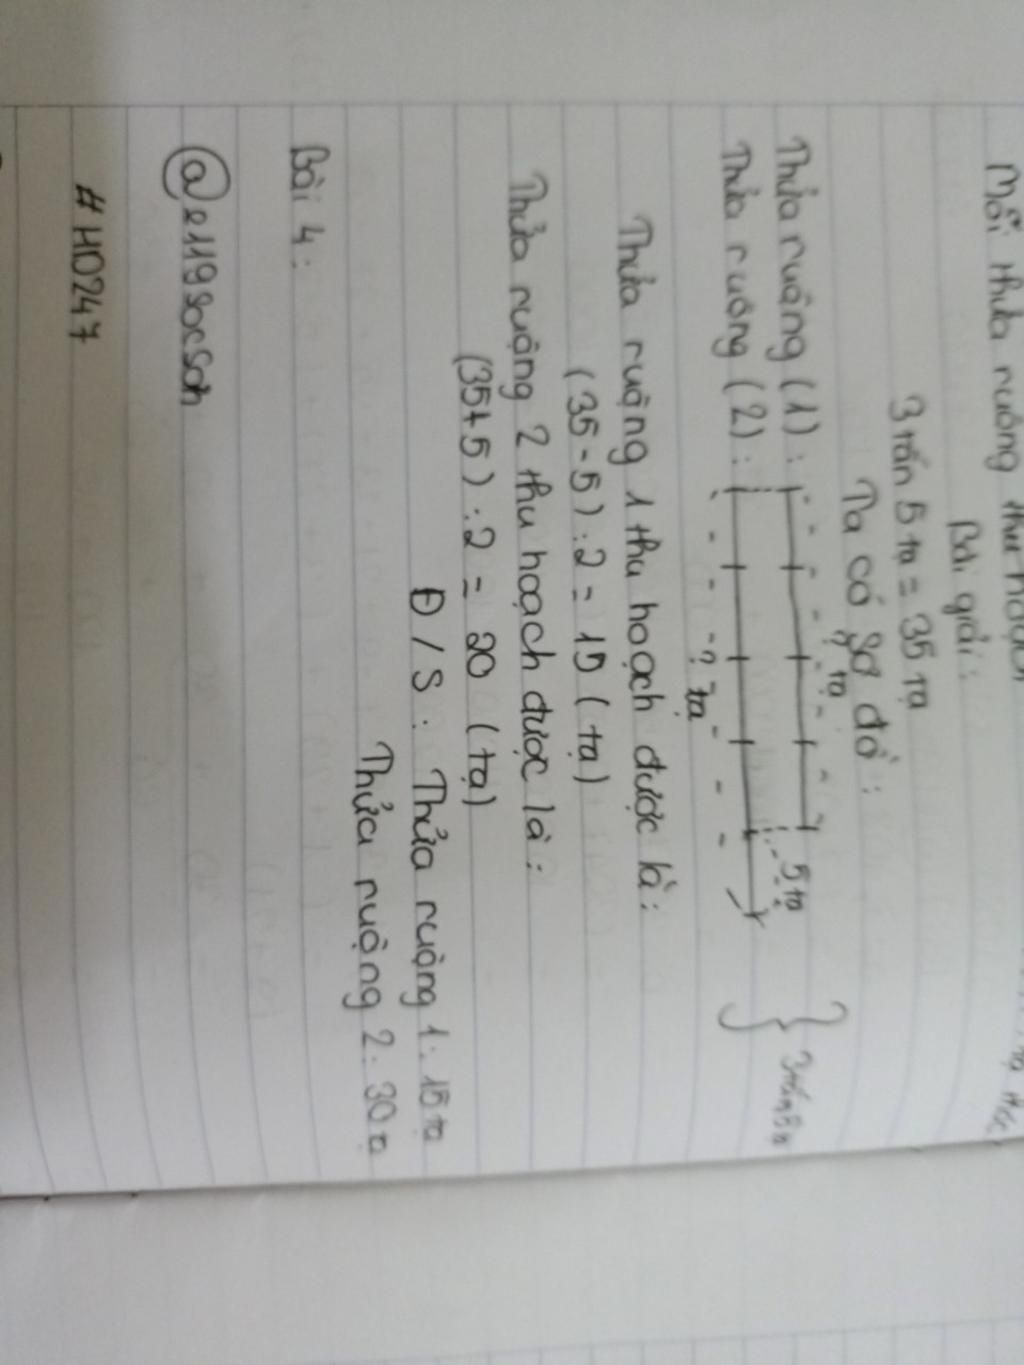 Mỗi thửa ruộng thu hoạch
Bài giải:
3 tấn 5 tạ = 35 tạ
Ta có sơ đồ:
? tạ
Thửa ruộng (1):
5 tạ
3 tấn 5 tạ
Thửa ruộng (2):
? tạ
Thửa ruộng 1 thu hoạch được là:
(35 - 5) : 2 = 15 (tạ)
Thửa ruộng 2 thu hoạch được là:
(35 + 5) : 2 = 20 (tạ)
Đ/S: Thửa ruộng 1: 15 tạ
Thửa ruộng 2: 30 tạ
Bài 4:
@e119socson
#HD247